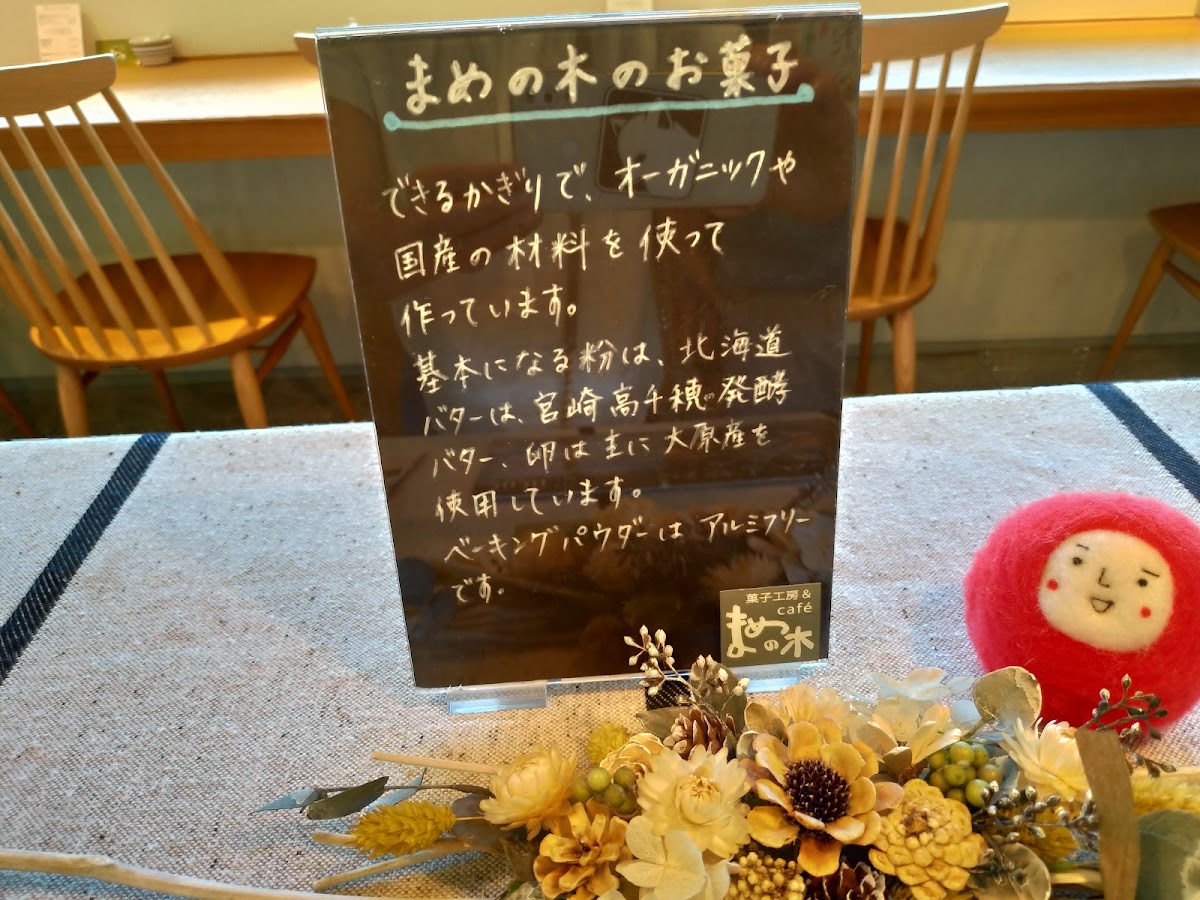 まめの木のお菓子
できるかぎりで、オーガニックや
国産の材料を使って
作っています。
基本になる粉は、北海道
バターは、宮崎高千穂発酵
バター、卵は主に大原産を
使用しています。
ベーキングパウダーはアルミフリー
です。
菓子工房&
café
まめの木